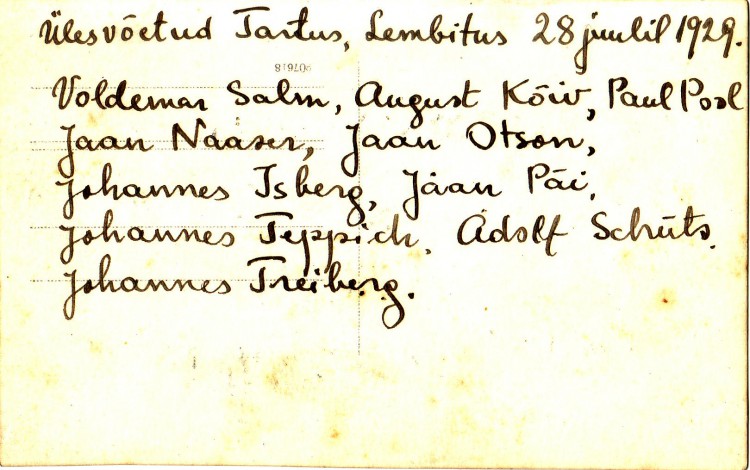 Ülesvõetud Tartus, Lembitus 28 juulil 1929.
907618
Voldemar Salm, August Kõiv, Paul Pool
Jaan Naaser, Jaan Otson,
Johannes Isberg, Jaan Päi,
Johannes Teppich, Adolf Schüts.
Johannes Freiberg.